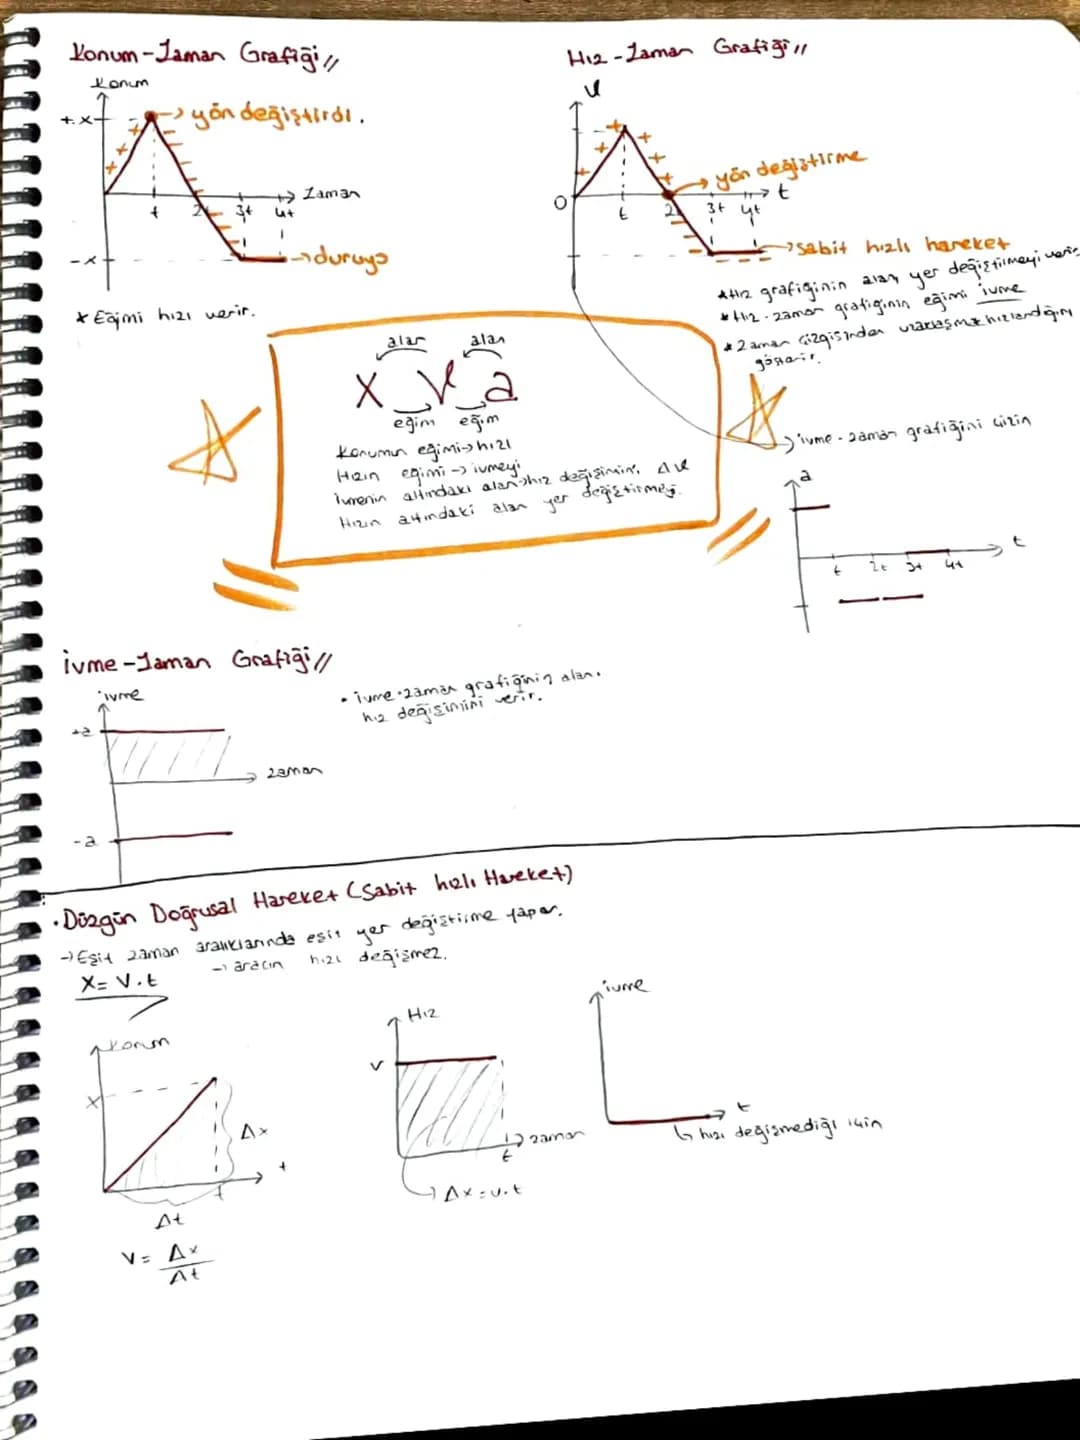 Konum-Zaman Grafiği //
Konum
+x
→ yön değiştirdi.
Zaman
t 2t 3t 4t
-x
→ duruyo
* Eğimi hızı verir.
Hız-Zaman Grafiği //
V
→ yön değiştirme
0
t
t 2t 3t 4t
→ sabit hızlı hareket
* Hız grafiğinin alanı yer değiştilmeyi verir
* Hız-zaman grafiğinin eğimi ivme
* Zaman çizgisinden uzaklaşma hızlandığını
gösterir.
alan alan
X V a
eğim eğim
Konumun eğimi → hızı
Hızın eğimi → ivmeyi
İvmenin altındaki alan → hız değişimini. ΔV
Hızın altındaki alan yer değiştirmeyi.
→ ivme-zaman grafiğini çizin
a
t
t 2t 3t 4t
İvme-Zaman Grafiği //
ivme
+a
zaman
-a
• ivme-zaman grafiğinin alanı
hız değişimini verir.
• Düzgün Doğrusal Hareket (Sabit hızlı Hareket)
→ Eşit zaman aralıklarında eşit yer değiştirme yapar.
→ aracın hızı değişmez.
X = V.t
Konum
x
Δx
t
t
Δt
V = Δx
Δt
Hız
V
zaman
t
→ Δx = v.t
ivme
t
↳ hızı değişmediği için